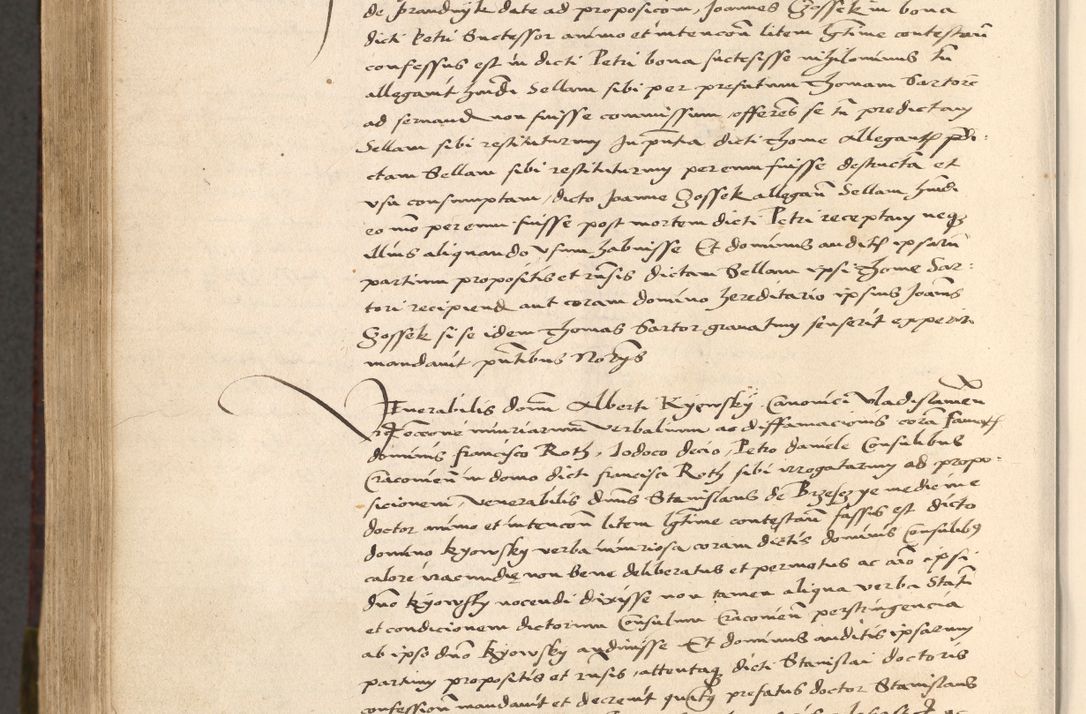 de prandnyk date ad proposicom, Joannes Gossek in bona
dicti Petri Suctessor animo et intencon̄ litem lgt̄ime contestan̄
confessus est in dicti Petri bona suctesisse nihilominus tn̄
allegavit hm̄di Sellam sibi per prefatum Thomam Sartorē
ad servand non fuisse commissum, offerēs se tn̄ predictam
Sellam sibi restituturum In pn̄tia dicti Thome Allegant͛ pdi:
ctam Sellam sibi restituturum peremi fuisse destructā et
usu consumptam, dicto Joanne Gossek allegan̄ Sellam hm̄di
eo mō peremi fuisse post mortem dicti Petri receptam neq3
illius aliquando usum habuisse Et dominus auditis ipsaru̅
partium propositis et rn̄sis dictam Sellam ipsi Thome Sar:
tori recipiend aut coram domino hereditario ipsius Joan̄is
Gossek si se idem Thomas Sartor gravatum senserit experiri
mandavit pn̄tibus Notarys
Venerabilis domi Alberti Kyowsky Canonici Vladislavieñ
ad occone iniuriarum verbalium ac diffamacionis corā famatis
dominis francisco Roth, Jodoco decio, Petro daniele Consulibus
Cracovieñ in domo dicti francisci Roth sibi irrogatarum ad propo-
sicionem, Venerabilis dn̄us Stanislaus de Brzeszye medicine
doctor animo et intencon̄ litem lgt̄ime contestan̄ fassus est dicto
domino kyowsky verba iniuriosa coram dictis dominis Consulib9
calore iracundię non bene deliberatus et permotus ac aīo ipsi
dn̄o kyowsky nocendi dixysse non tamen aliqua verba Statū
et condicionem dictorum Consulum Cracovieñ perstringencia
ab ipso dn̄o kyowsky audivisse Et dominus auditis ipsarum
partium propositis et rn̄sis, attentaq3 dicti Stanislai doctoris
confession̄ mandavit et decrevit quatz prefatus doctor Stanislaus